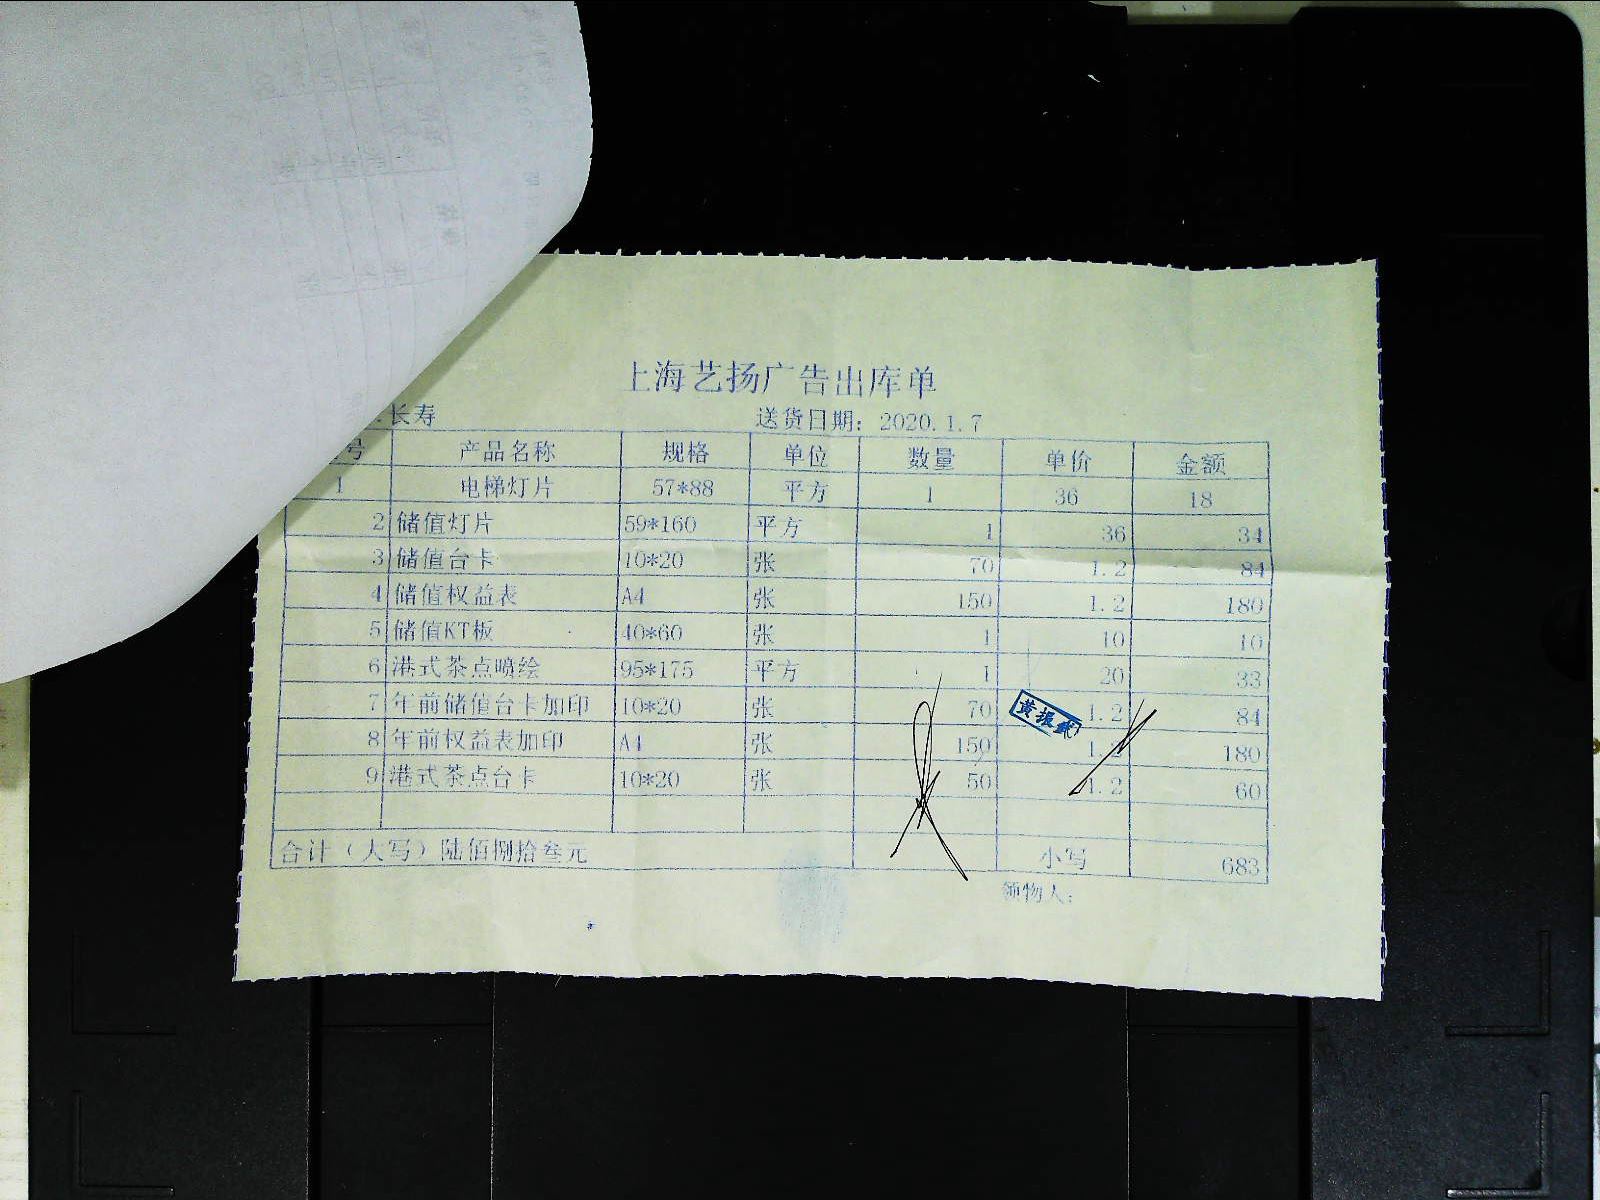 上海艺扬广告出库单
长寿 送货日期：2020.1.7
号 产品名称 规格 单位 数量 单价 金额
1 电梯灯片 57*88 平方 1 36 18
2 储值灯片 59*160 平方 1 36 34
3 储值台卡 10*20 张 70 1.2 84
4 储值权益表 A4 张 150 1.2 180
5 储值KT板 40*60 张 1 10 10
6 港式茶点喷绘 95*175 平方 1 20 33
7 年前储值台卡加印 10*20 张 70 1.2 84
8 年前权益表加印 A4 张 150 1.2 180
9 港式茶点台卡 10*20 张 50 1.2 60
合计（大写）陆佰捌拾叁元 小写 683
领物人：